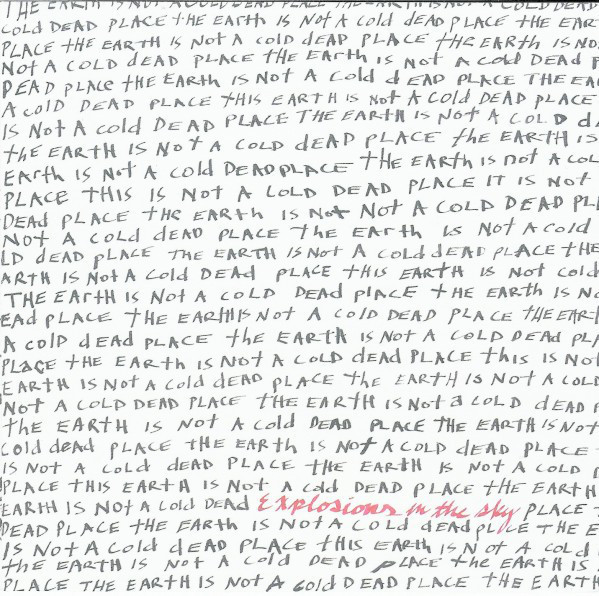 THE EARTH IS NOT A COLD DEAD PLACE THE EARTH IS NOT A COLD DEAD
COLD DEAD PLACE THE EARTH IS NOT A COLD DEAD PLACE THE EAR
PLACE THE EARTH IS NOT A COLD DEAD PLACE THE EARTH IS NO
NOT A COLD dEAD PLACE THE EARTH IS NOT A COLD DEAD P
DEAD PLACE THE EARTH IS NOT A COLD dEAD PLACE THE EA
A COLD DEAD PLACE THIS EARTH IS NOT A COLD DEAD PLACE
IS NOT A COLD DEAD PLACE THE EARTH IS NOT A COLD d
THE EARTH IS NOT A COLD dEAD PLACE THE EARTH IS
EARTH IS NOT A COLD DEAD PLACE THE EARTH IS NOT A COL
PLACE THIS IS NOT A COLD DEAD PLACE IT IS NOT
DEAD PLACE THE EARTH IS NOT NOT A COLD DEAD PL
NOT A COLd dEAD PLACE THE EARTH IS NOT A COld
LD dEAD PLACE THE EARTH IS NOT A COLD dEAD PLACE THE
ARTH IS NOT A COLD DEAD PLACE THIS EARTH IS NOT COLD
THE EARTH IS NOT A COLD DEAD PLACE THE EARTH IS N
EAD PLACE THE EARTH IS NOT A COLD DEAD PLACE THE EAR
A COLD dEAD PLACE THE EARTH IS NOT A COLD DEAD PL
PLACE THE EARTH IS NOT A COLD dEAD PLACE this IS NO
EARTH IS NOT A COLD dEAD PLACE THE EARTH IS NOT A COLD
NOT A COLD DEAD PLACE THE EARTH IS NOT a COLD dEAD
THE EARTH IS NOT A COLD DEAD PLACE THE EARTH IS NOT
COLD dead PLACE THE EARTH IS NOT A COLD dEAD PLACE
IS NOT A COLd dEAD PLACE THE EARTH IS NOT A COLD
PLACE THIS EARTH IS NOT A COLD DEAD PLACE THE EARTH
EARTH IS NOT A COLD DEAD Explosions in the sky PLACE
DEAD PLACE THE EARTH IS NOT A COLD dEAD PLACE THE E
IS NOT A COLD dEAD PLACE THIS EARTH IS NOT A COLD
THE EARTH IS NOT A COLD DEAD PLACE THE EARTH IS
PLACE THE EARTH IS NOT A COLD DEAD PLACE THE EARTH